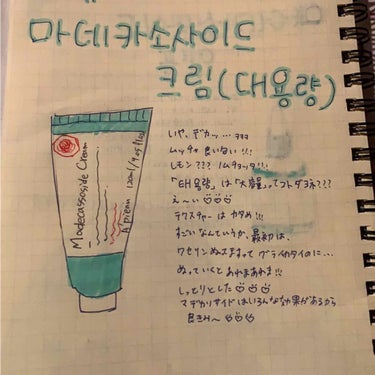 마데카소사이드
크림(대용량)
Madecassoside Cream
A'PIEU
いや、デカッ…ヲヲヲ
ムッチャ 良いない!!
レモン??? ノムチョッタ!!
「대용량」は「大容量」ってコトダヨネ???
え〜い
テクスチャーは カタめ!!
すごい なんていうか、最初は、
ワセリン ぬってますって グライカタイのに…
ぬっていくと あれまあれま!!
しっとりとした
マデカソサイドはいろんな効果があるから
良きみ〜